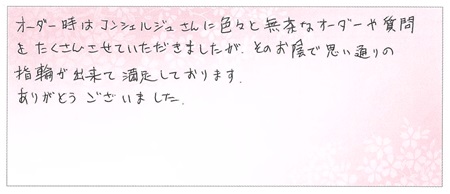 オーダー時はコンシェルジュさんに色々と無茶なオーダーや質問
をたくさんさせていただきましたが、そのお陰で思い通りの
指輪が出来て満足しております.
ありがとうございました.